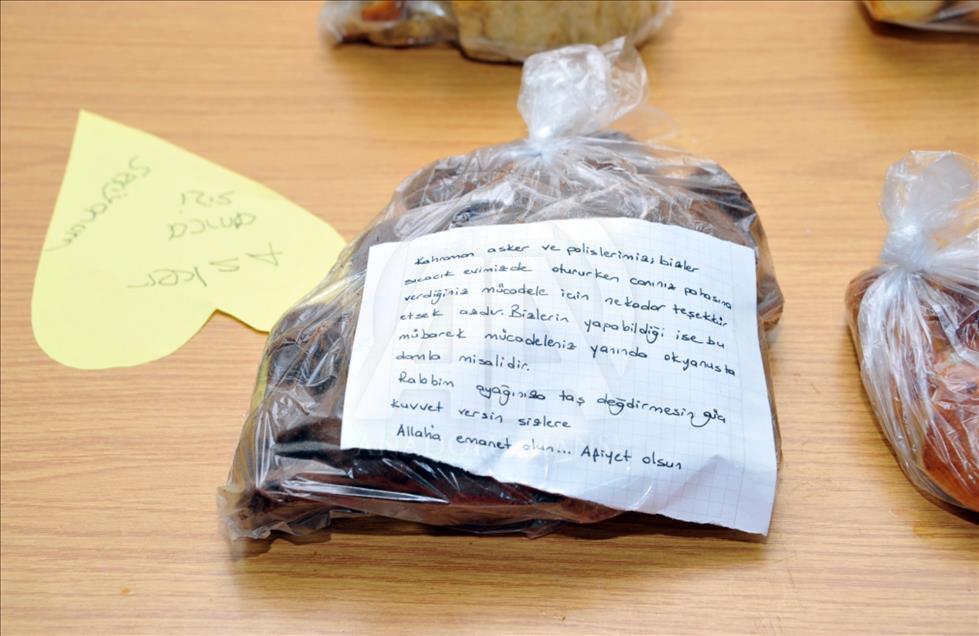 Kahraman asker ve polislerimiz; bizler
sıcacık evimizde otururken canınız pahasına
verdiğiniz mücadele için nekadar teşekkür
etsek azdır. Bizlerin yapabildiği ise bu
mübarek mücadeleniz yanında okyanusta
damla misalidir.
Rabbim ayağınıza taş değdirmesin güç
kuvvet versin sizlere
Allah'a emanet olun... Afiyet olsun
Asker
amca
sizi